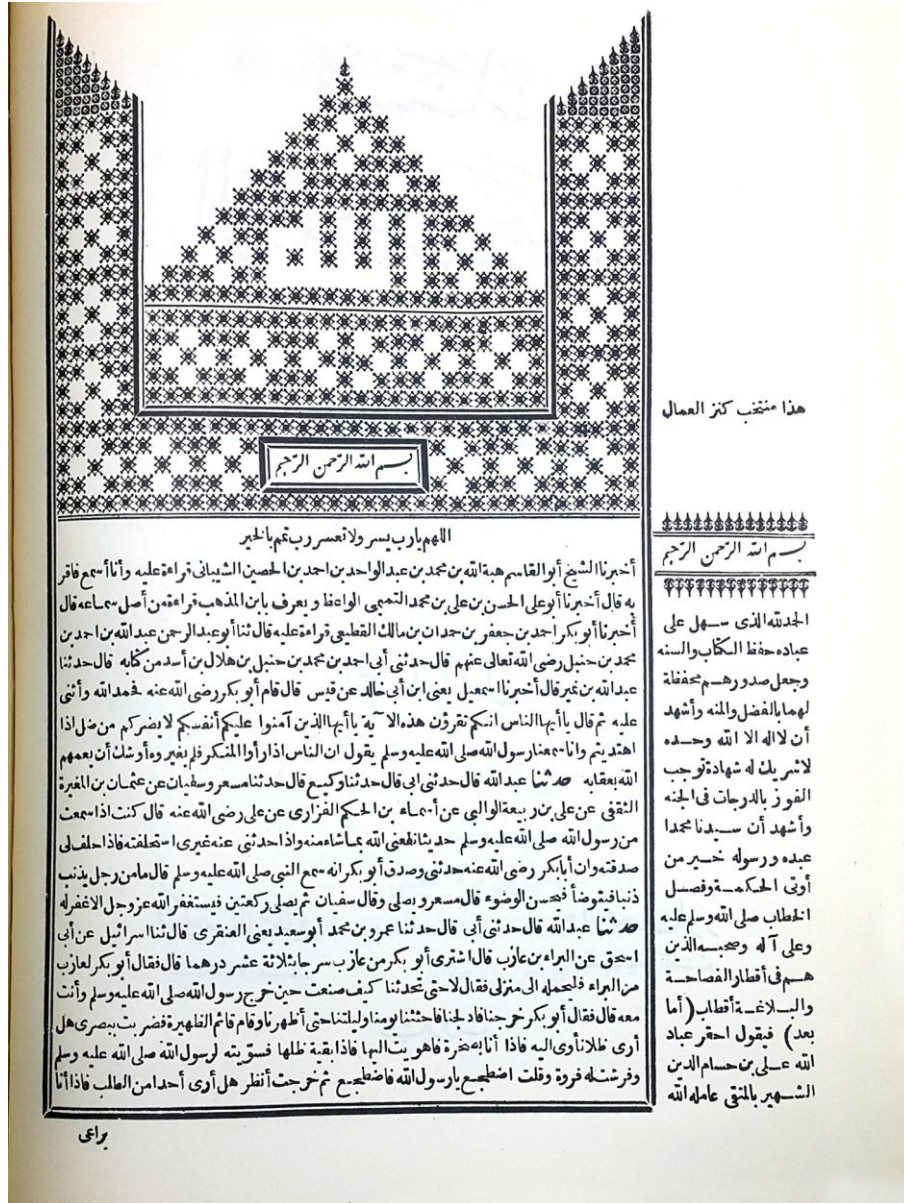 هذا منتخب كنز العمال
بسم الله الرحمن الرحيم
اللهم يارب يسر ولا تعسر رب تمم بالخير
أخبرنا الشيخ أبو القاسم هبة الله بن محمد بن عبد الواحد بن احمد بن الحصين الشيباني قراءة عليه وأنا أسمع فاقر
به قال أخبرنا أبو على الحسن بن على بن محمد التميمى الواعظ و يعرف بابن المذهب قراءة من أصل سماعه قال
أخبرنا أبو بكر احمد بن جعفر بن حمدان بن مالك القطيعى قراءة عليه قال ثنا أبو عبد الرحمن عبد الله بن احمد بن
محمد بن حنبل رضى الله تعالى عنهم قال حدثنى أبى احمد بن محمد بن حنبل بن هلال بن أسد من كتابه قال حدثنا
عبد الله بن نمير قال أخبرنا اسمعيل يعنى ابن أبى خالد عن قيس قال قام أبو بكر رضى الله عنه فحمد الله وأثنى
عليه ثم قال يا أيها الناس انكم تقرؤن هذه الا ية يا أيها الذين آمنوا عليكم أنفسكم لا يضركم من ضل اذا
اهتديتم وانا سمعنا رسول الله صلى الله عليه وسلم يقول ان الناس اذا رأوا المنكر فلم يغيروه أوشك أن يعمهم
الله بعقابه حدثنا عبد الله قال حدثنى ابى قال حدثنا وكيع قال حدثنا مسعر وسفيان عن عثمان بن المغيرة
الثقفى عن على بن ربيعة الوالبى عن أسماء بن الحكم الفزارى عن على رضى الله عنه قال كنت اذا سمعت
من رسول الله صلى الله عليه وسلم حديثا نفعنى الله بما شاء منه واذا حدثنى عنه غيرى استحلفته فاذا حلف لى
صدقته وان أبا بكر رضى الله عنه حدثنى وصدق أبو بكر انه سمع النبى صلى الله عليه وسلم قال ما من رجل يذنب
ذنبا فيتوضأ فيحسن الوضوء قال مسعر ويصلى وقال سفيان ثم يصلى ركعتين فيستغفر الله عز وجل الا غفر له
حدثنا عبد الله قال حدثنى أبى قال حدثنا عمرو بن محمد أبو سعيد يعنى العنقرى قال ثنا اسرائيل عن أبى
اسحق عن البراء بن عازب قال اشترى أبو بكر من عازب سرجا بثلاثة عشر درهما قال فقال أبو بكر لعازب
من البراء فليحمله الى منزلى فقال لا حتى تحدثنا كيف صنعت حين خرج رسول الله صلى الله عليه وسلم وأنت
معه قال فقال أبو بكر خرجنا فادلجنا فاحثثنا يومنا وليلتنا حتى أظهرنا وقام قائم الظهيرة فضربت ببصرى هل
أرى ظلا نأوى اليه فاذا أنا بصخرة فاهويت اليها فاذا بقية ظلها فسويته لرسول الله صلى الله عليه وسلم
وفرشت له فروة وقلت اضطجع يا رسول الله فاضطجع ثم خرجت أنظر هل أرى أحدا من الطلب فاذا أنا
براعى
بسم الله الرحمن الرحيم
الحمد لله الذى سهل على
عباده حفظ الكتاب والسنه
وجعل صدورهم محفظة
لهما بالفضل والمنه وأشهد
أن لا اله الا الله وحده
لا شريك له شهادة توجب
الفوز بالدرجات فى الجنه
وأشهد أن سيدنا محمدا
عبده ورسوله خير من
أوتى الحكمة وفصل
الخطاب صلى الله وسلم عليه
وعلى آله وصحبه الذين
هم فى أقطار الفصاحة
والبلاغة أقطاب (أما
بعد) فيقول احقر عباد
الله على بن حسام الدين
الشهير بالمتقى عامله الله